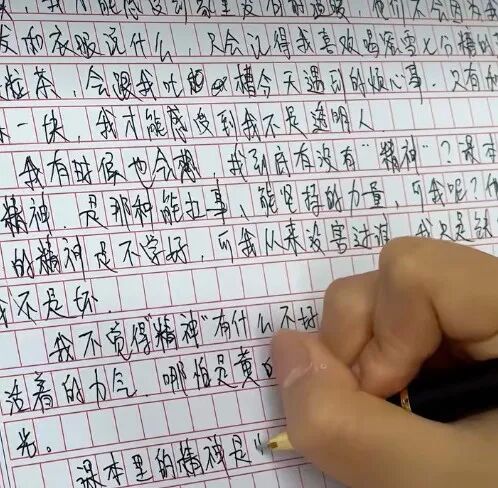 我才能感受到
衣服说什么,只会记得我喜欢喝冰雪七分糖的
茶,会跟我吐槽今天遇到的烦心事。只有
一块,我才能感受到我不是透明人。
我有时候也会想,我到底有没有“精神”?课本
精神,是那种能扛事、能坚持的力量,可我呢?
的精神是不学好,可我从来没害过谁,我只是
我不是坏
我不觉得“精神”有什么不好
活着的力气,哪怕是黄
光。
课本里的精神是